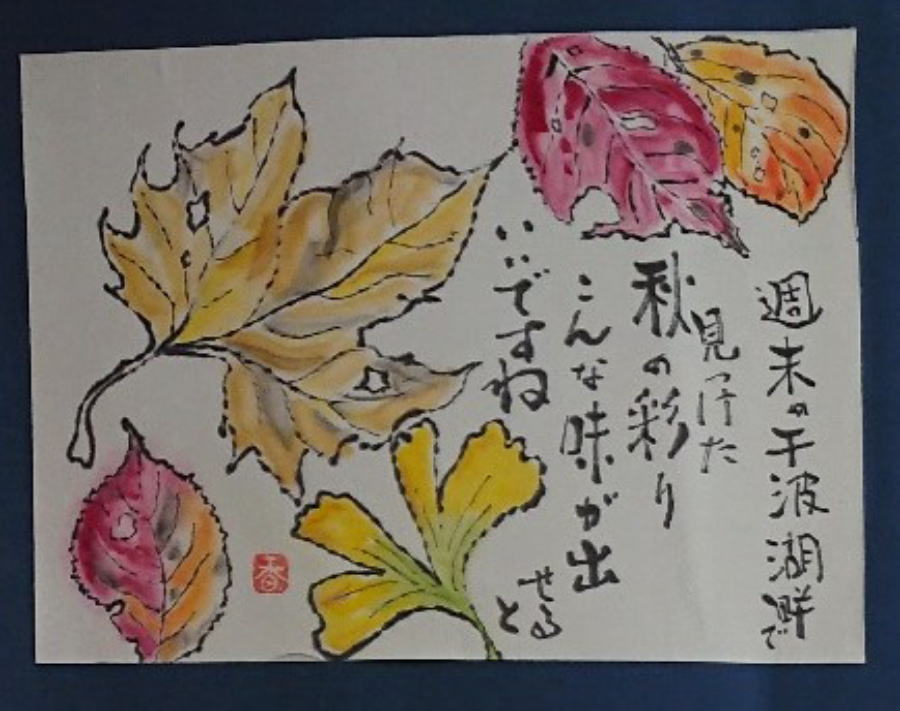 週末の千波湖畔で
見つけた
秋の彩り
こんな味が出
せると
いいですね
香